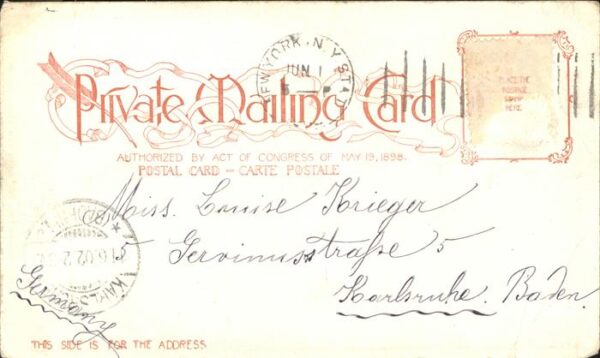 NEW YORK, N.Y. STA
JUN 1
Private Mailing Card
PLACE THE
POSTAGE
STAMP
HERE.
AUTHORIZED BY ACT OF CONGRESS OF MAY 19, 1898.
POSTAL CARD — CARTE POSTALE
Miss. Louise Krieger
5 Gervinusstraße 5
Karlsruhe. Baden.
Germany
THIS SIDE IS FOR THE ADDRESS